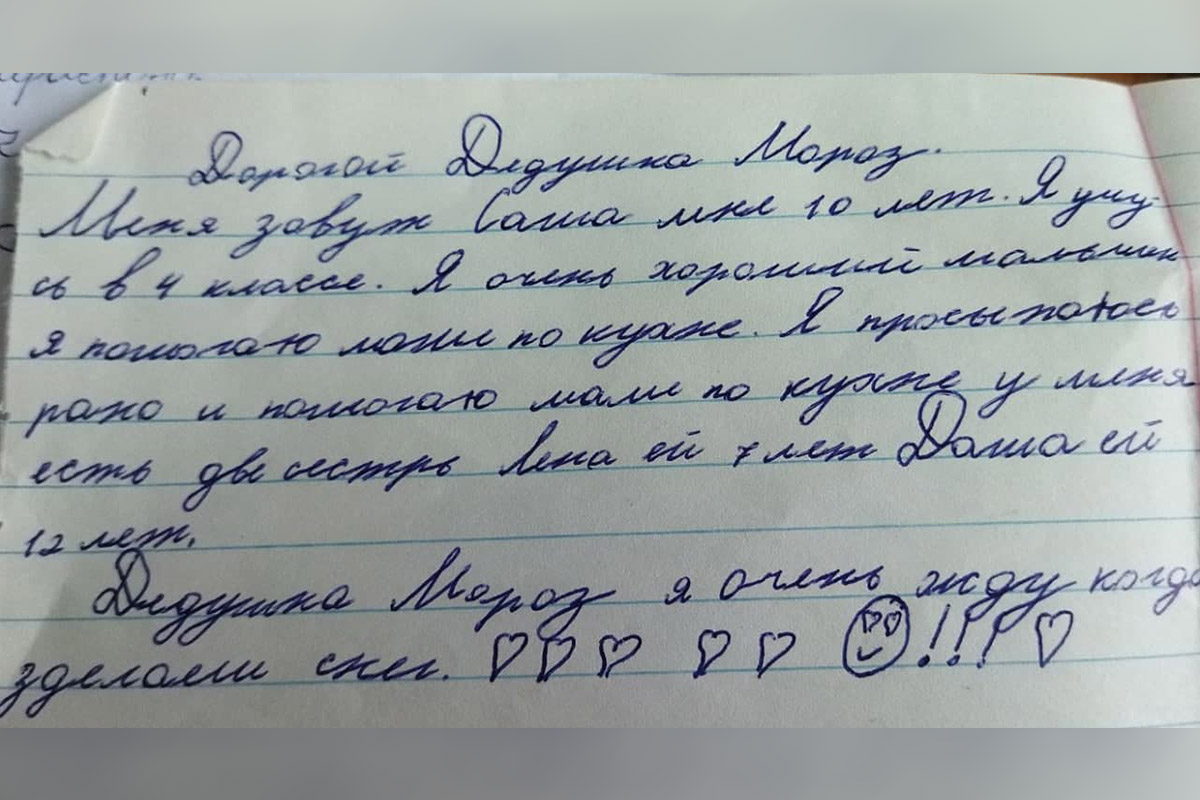 Дорогой Дедушка Мороз.
Меня зовут Саша мне 10 лет. Я учу-
сь в 4 классе. Я очень хороший мальчик
я помогаю маме по кухне. Я просыпаюсь
рано и помогаю маме по кухне у меня
есть две сестры Лена ей 7 лет Даша ей
12 лет.
Дедушка Мороз я очень жду когда
зделаеш снег. ♡♡♡ ♡♡ !!! ♡